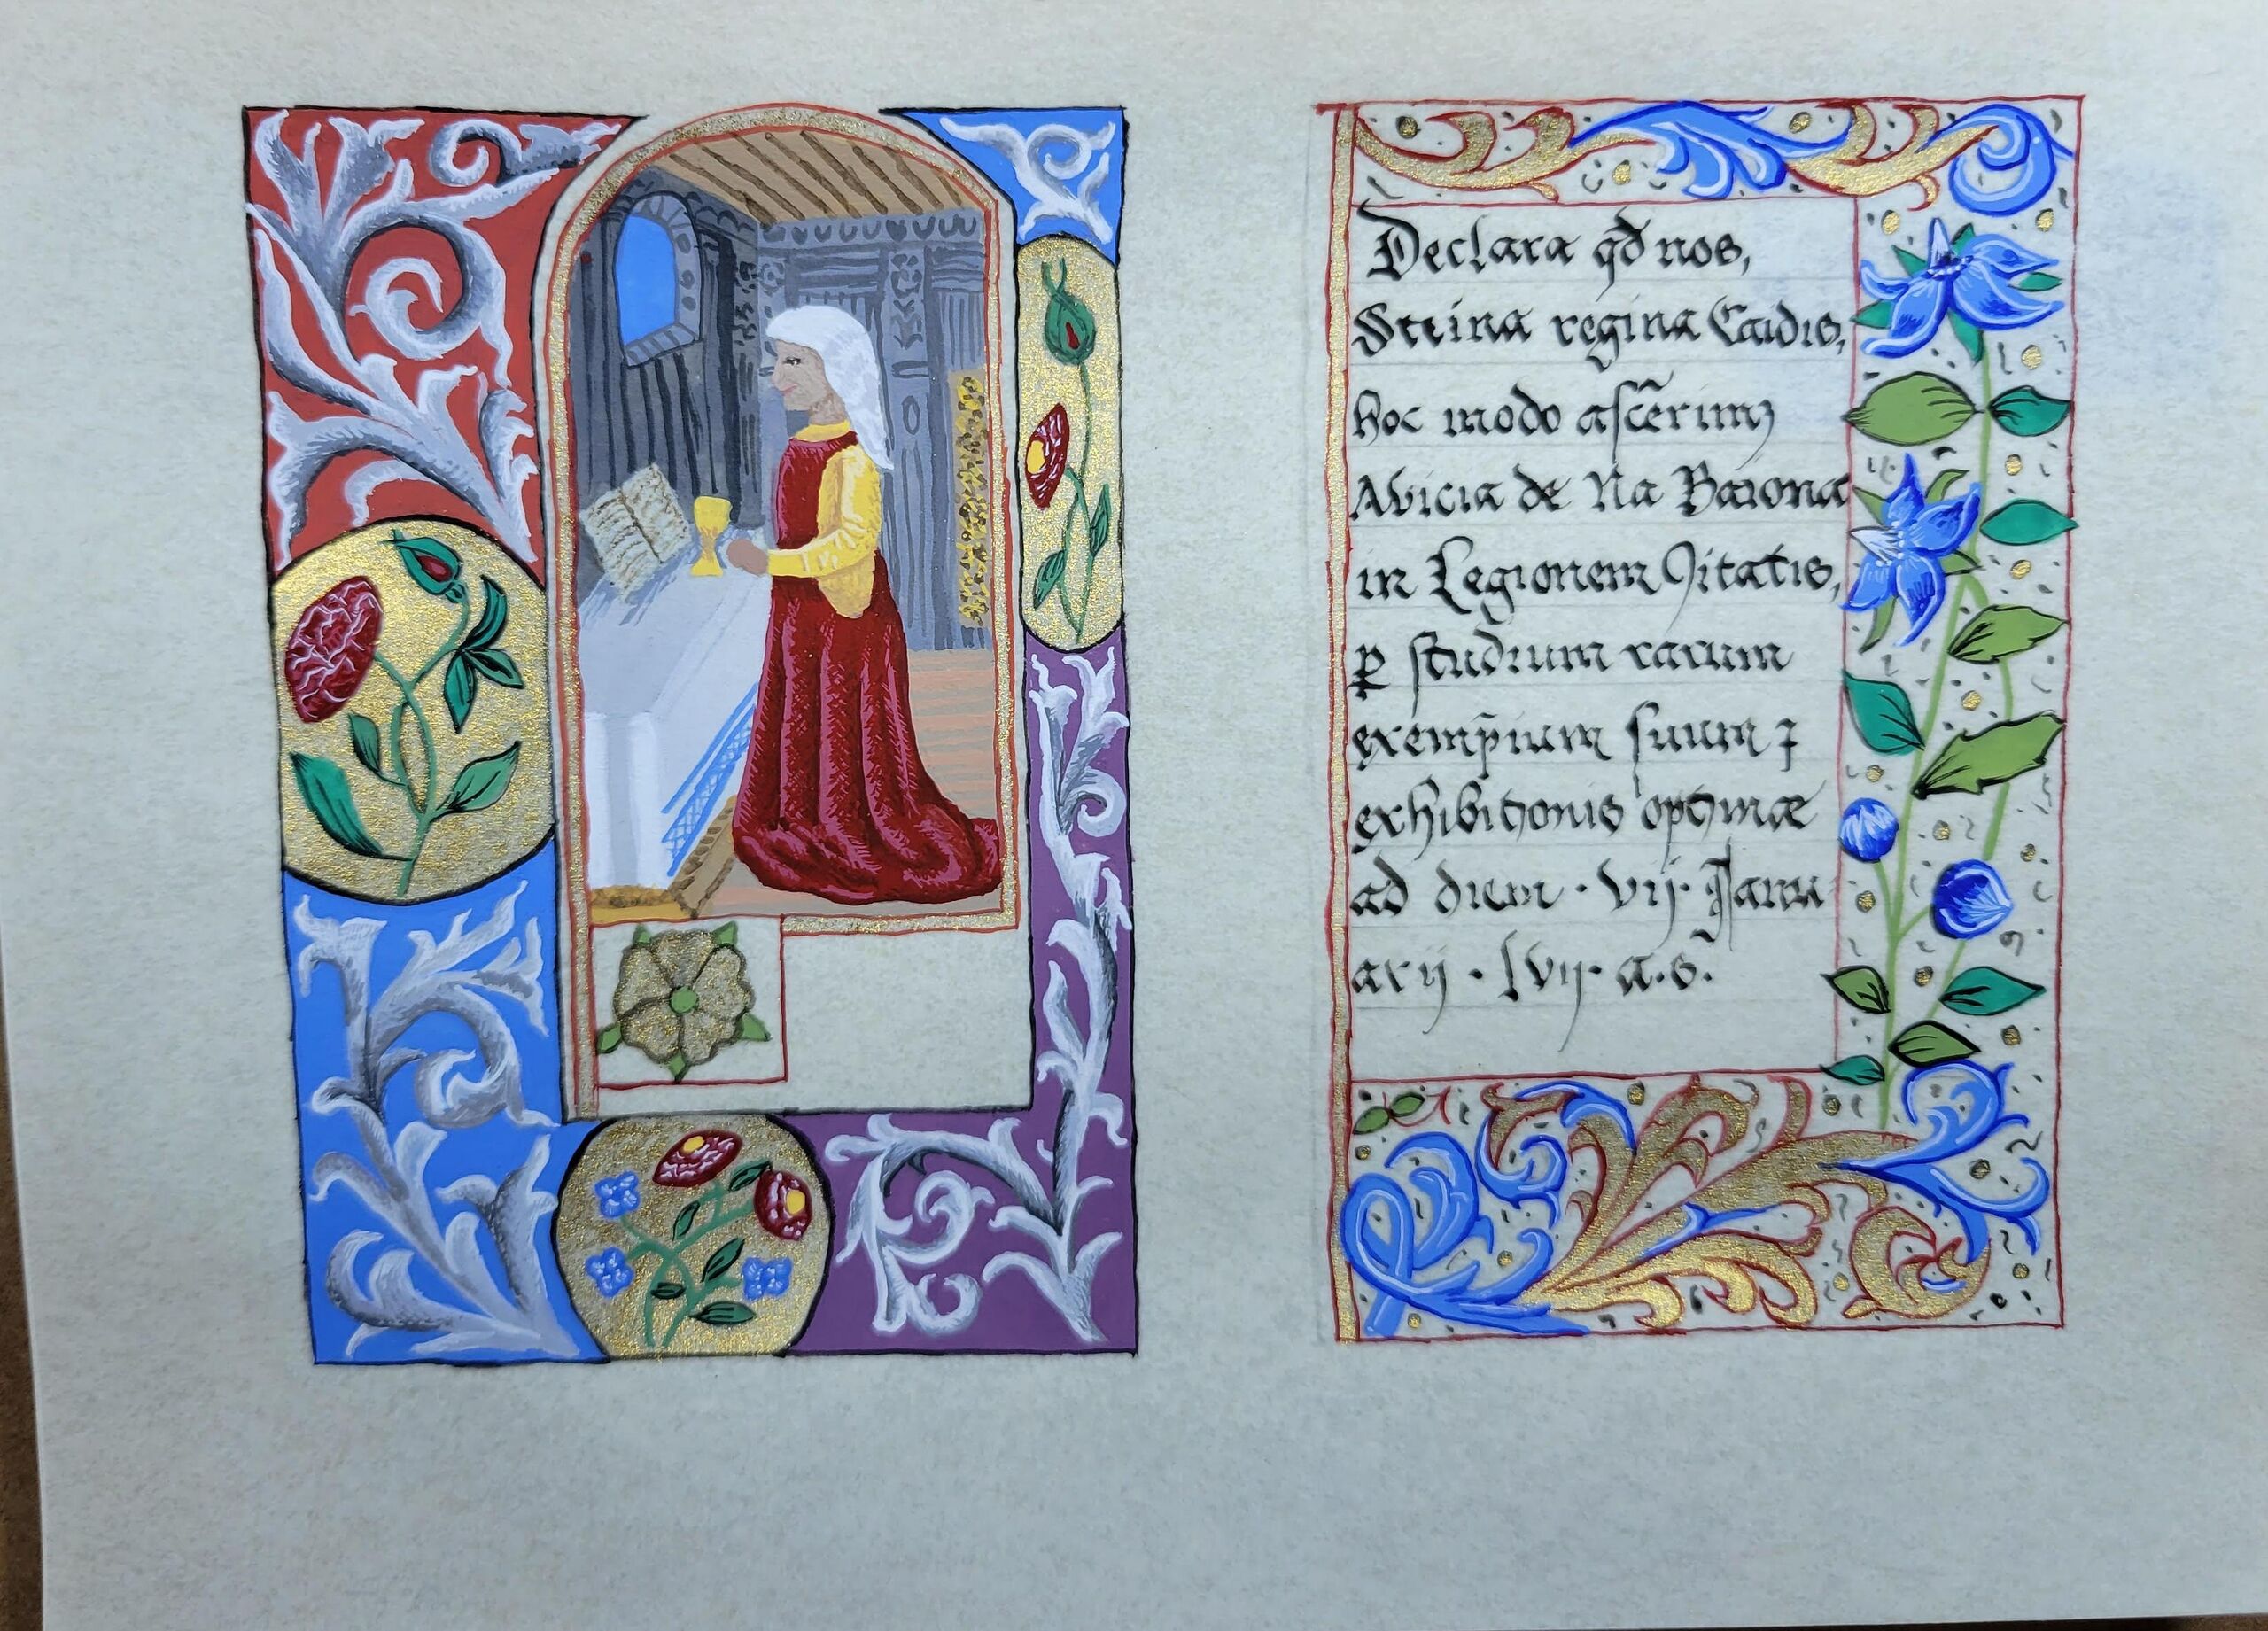 Declara qđ nos,
Steina regina Caidis,
hoc modo aſcẽrimꝫ
Avicia de Na Baiona
in Legionem Ꝯitatis,
ꝑ ſtudium rarum
exemp̃ium ſuum ⁊
exhibitionis optimæ
ad dium · vij · Janu
arij · lvij · a.s.